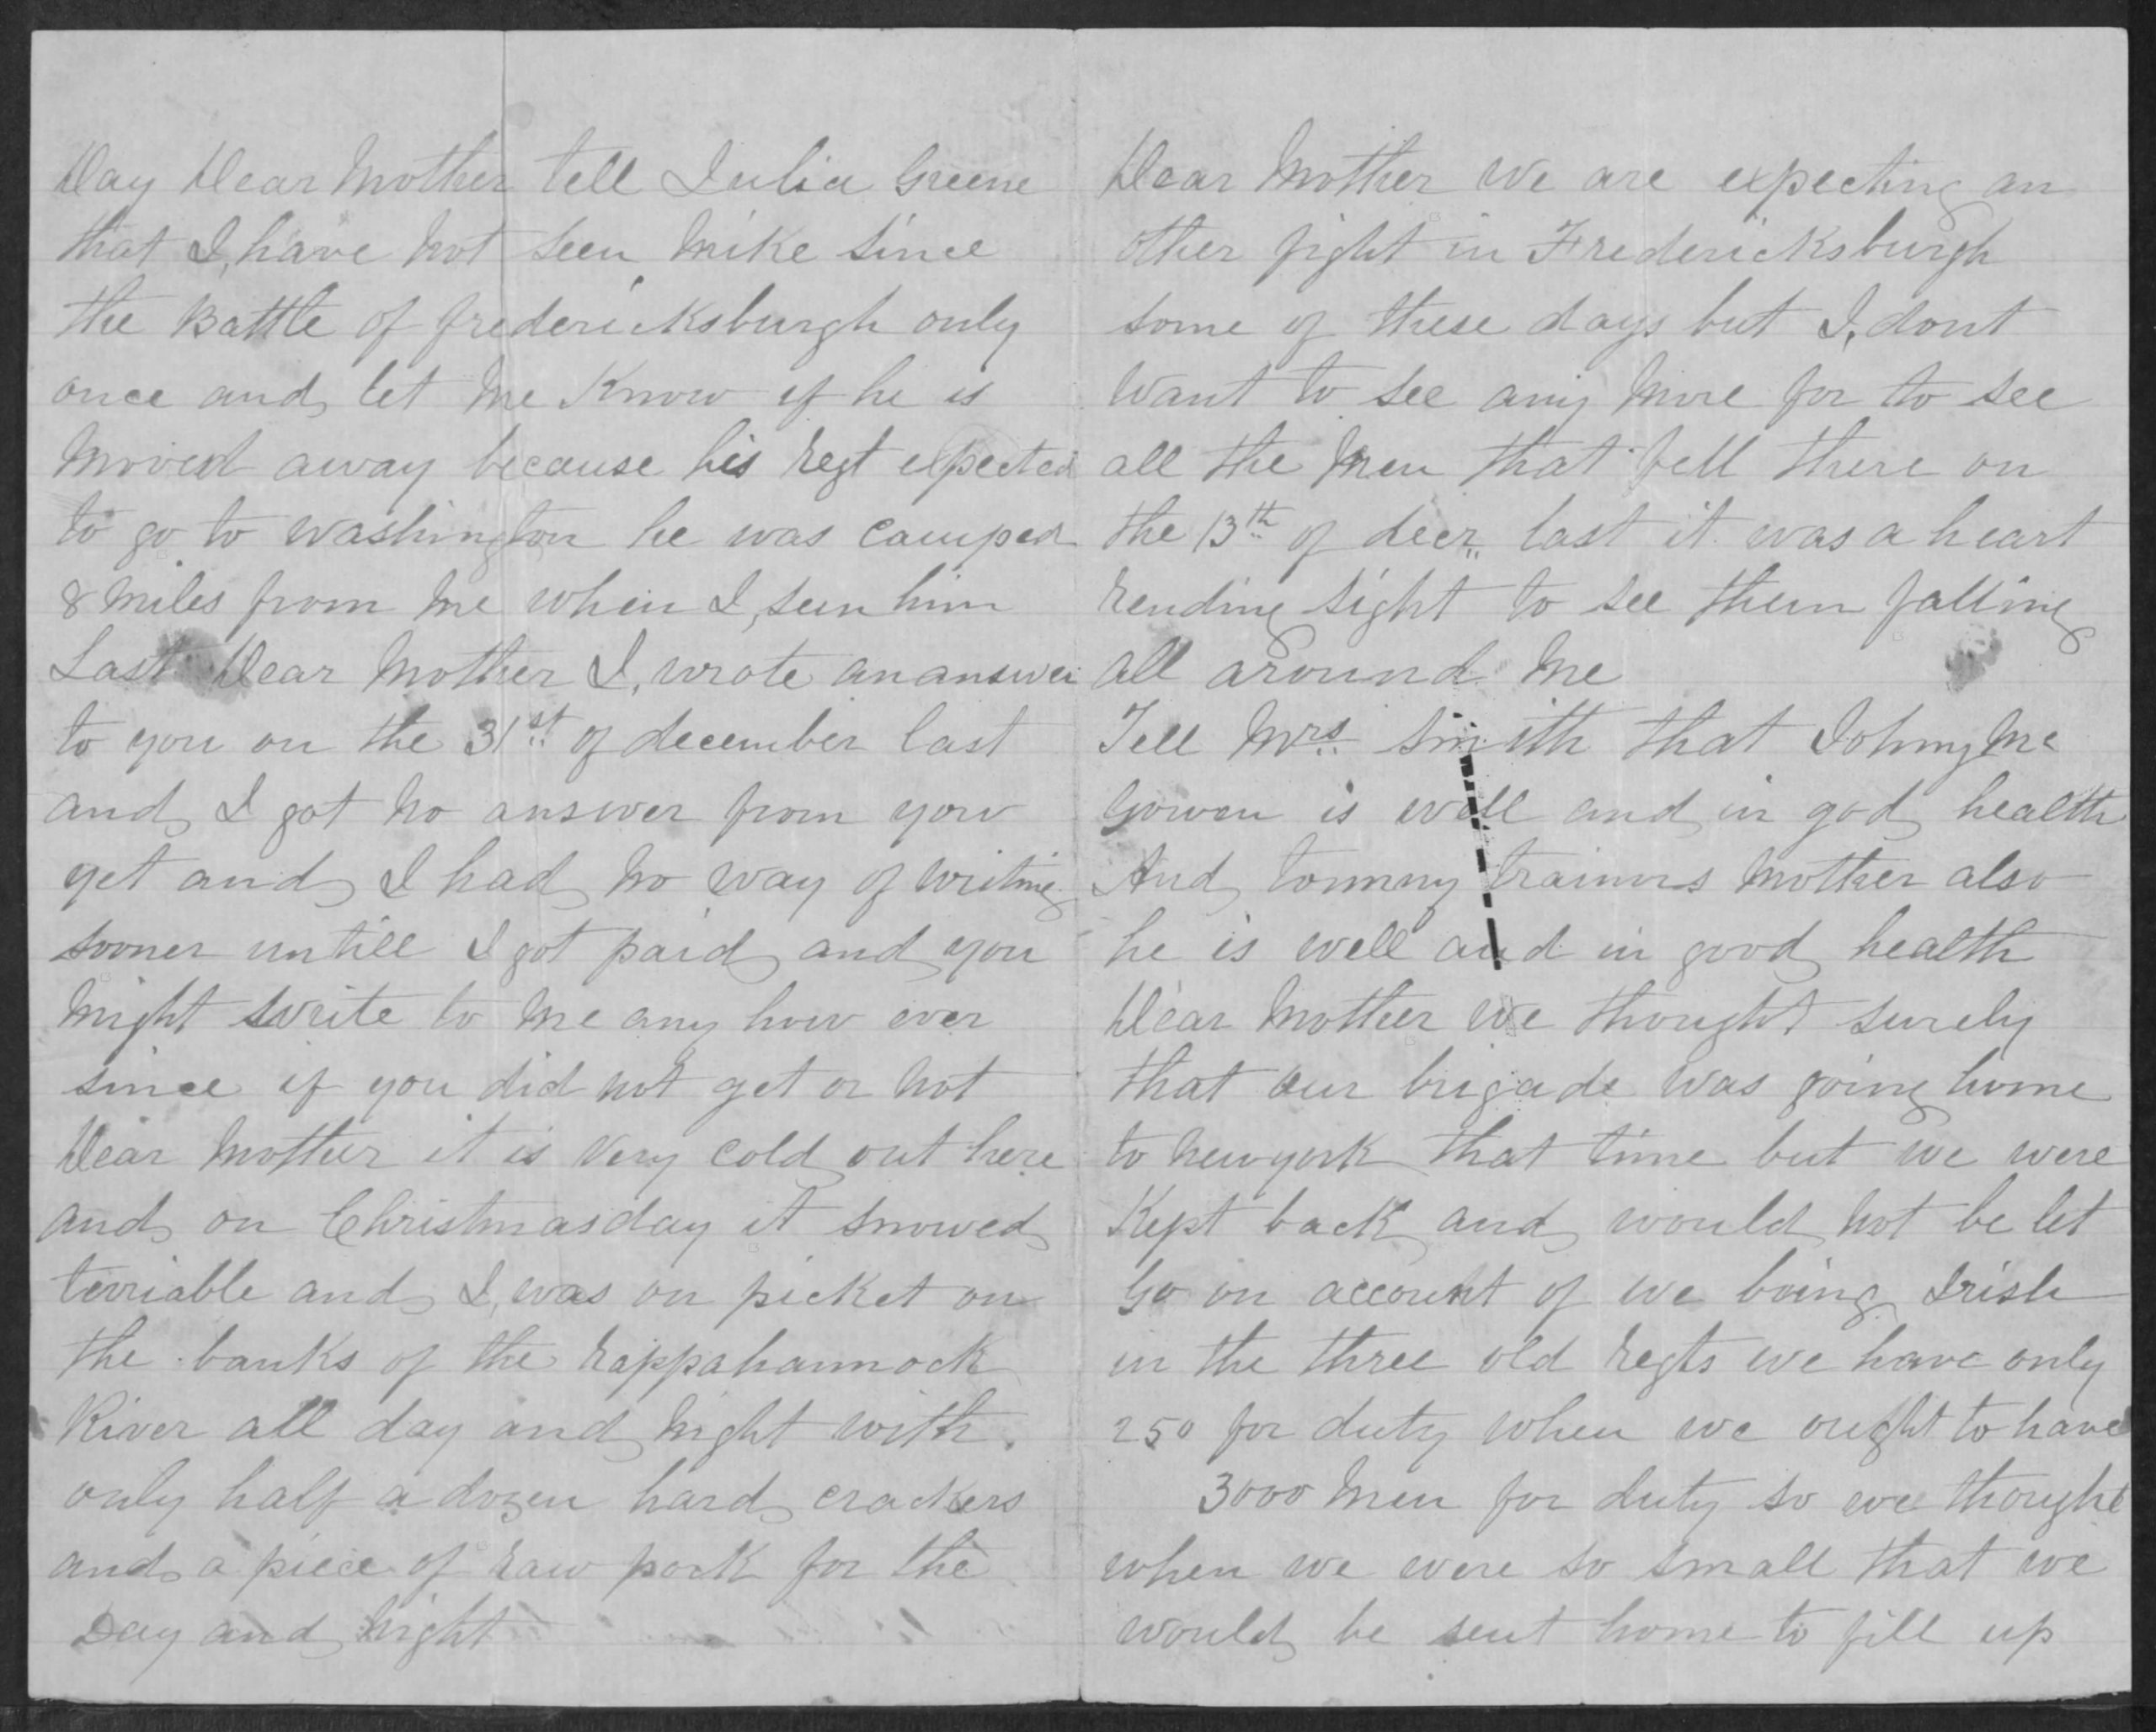 Day Dear Mother tell Julia Greene
that I, have not seen Mike since
the Battle of fredericksburgh only
once and let me Know if he is
moved away because his regt expected
to go to washington he was camped
8 miles from me when I, seen him
Last Dear Mother I, wrote an answer
to you on the 31st of december last
and I got no answer from you
yet and I had no way of writing
sooner untill I got paid and you
might write to me any how ever
since if you did not get or not
Dear Mother it is very cold out here
and on Christmasday it snowed
terriable and I, was on picket on
the banks of the rappahannock
River all day and night with
only half a dozen hard crackers
and a piece of raw pork for the
Day and night
Dear Mother we are expecting an
other fight in Fredericksburgh
some of these days but I, dont
want to see any more for to see
all the men that fell there on
the 13th of decr last it was a heart
rending sight to see them falling
all around me
Tell Mrs Smith that Johny Mc
Gowen is well and in god health
And tommy trainors mother also
he is well and in good health
Dear Mother we thought surely
that our brigade was going home
to newyork that time but we were
Kept back and would not be let
Go on account of we being Irish
in the three old regts we have only
250 for duty when we ought to have
3000 men for duty so we thought
when we were so small that we
would be sent home to fill up